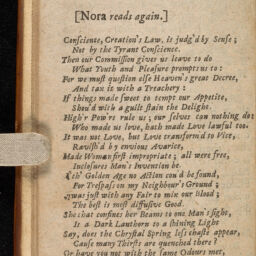 [Nora reads again.]
Conscience, Creation's Law, is judg'd by Sense;
Not by the Tyrant Conscience.
Then our Commission gives us leave to do
What Youth and Pleasure prompts us to:
For we must question else Heaven's great Decree,
And tax it with a Treachery:
If things made sweet to tempt our Appetite,
Shou'd with a guilt stain the Delight.
High'r Pow'rs rule us; our selves can nothing do:
Who made us love, hath made Love lawful too.
It was not Love, but Love transform'd to Vice,
Ravish'd by envious Avarice,
Made Woman first impropriate; all were free,
Inclosures Man's Invention be.
I'th' Golden Age no Action cou'd be found,
For Trespass on my Neighbour's Ground;
'Twas just with any Fair to mix our Blood;
The best is most diffusive Good.
She that confines her Beams to one Man's sight,
Is a Dark Lanthorn to a shining Light
Say, does the Chrystal Spring less chaste appear,
Cause many Thirsts are quenched there?
Or have you not with the same Odours met,